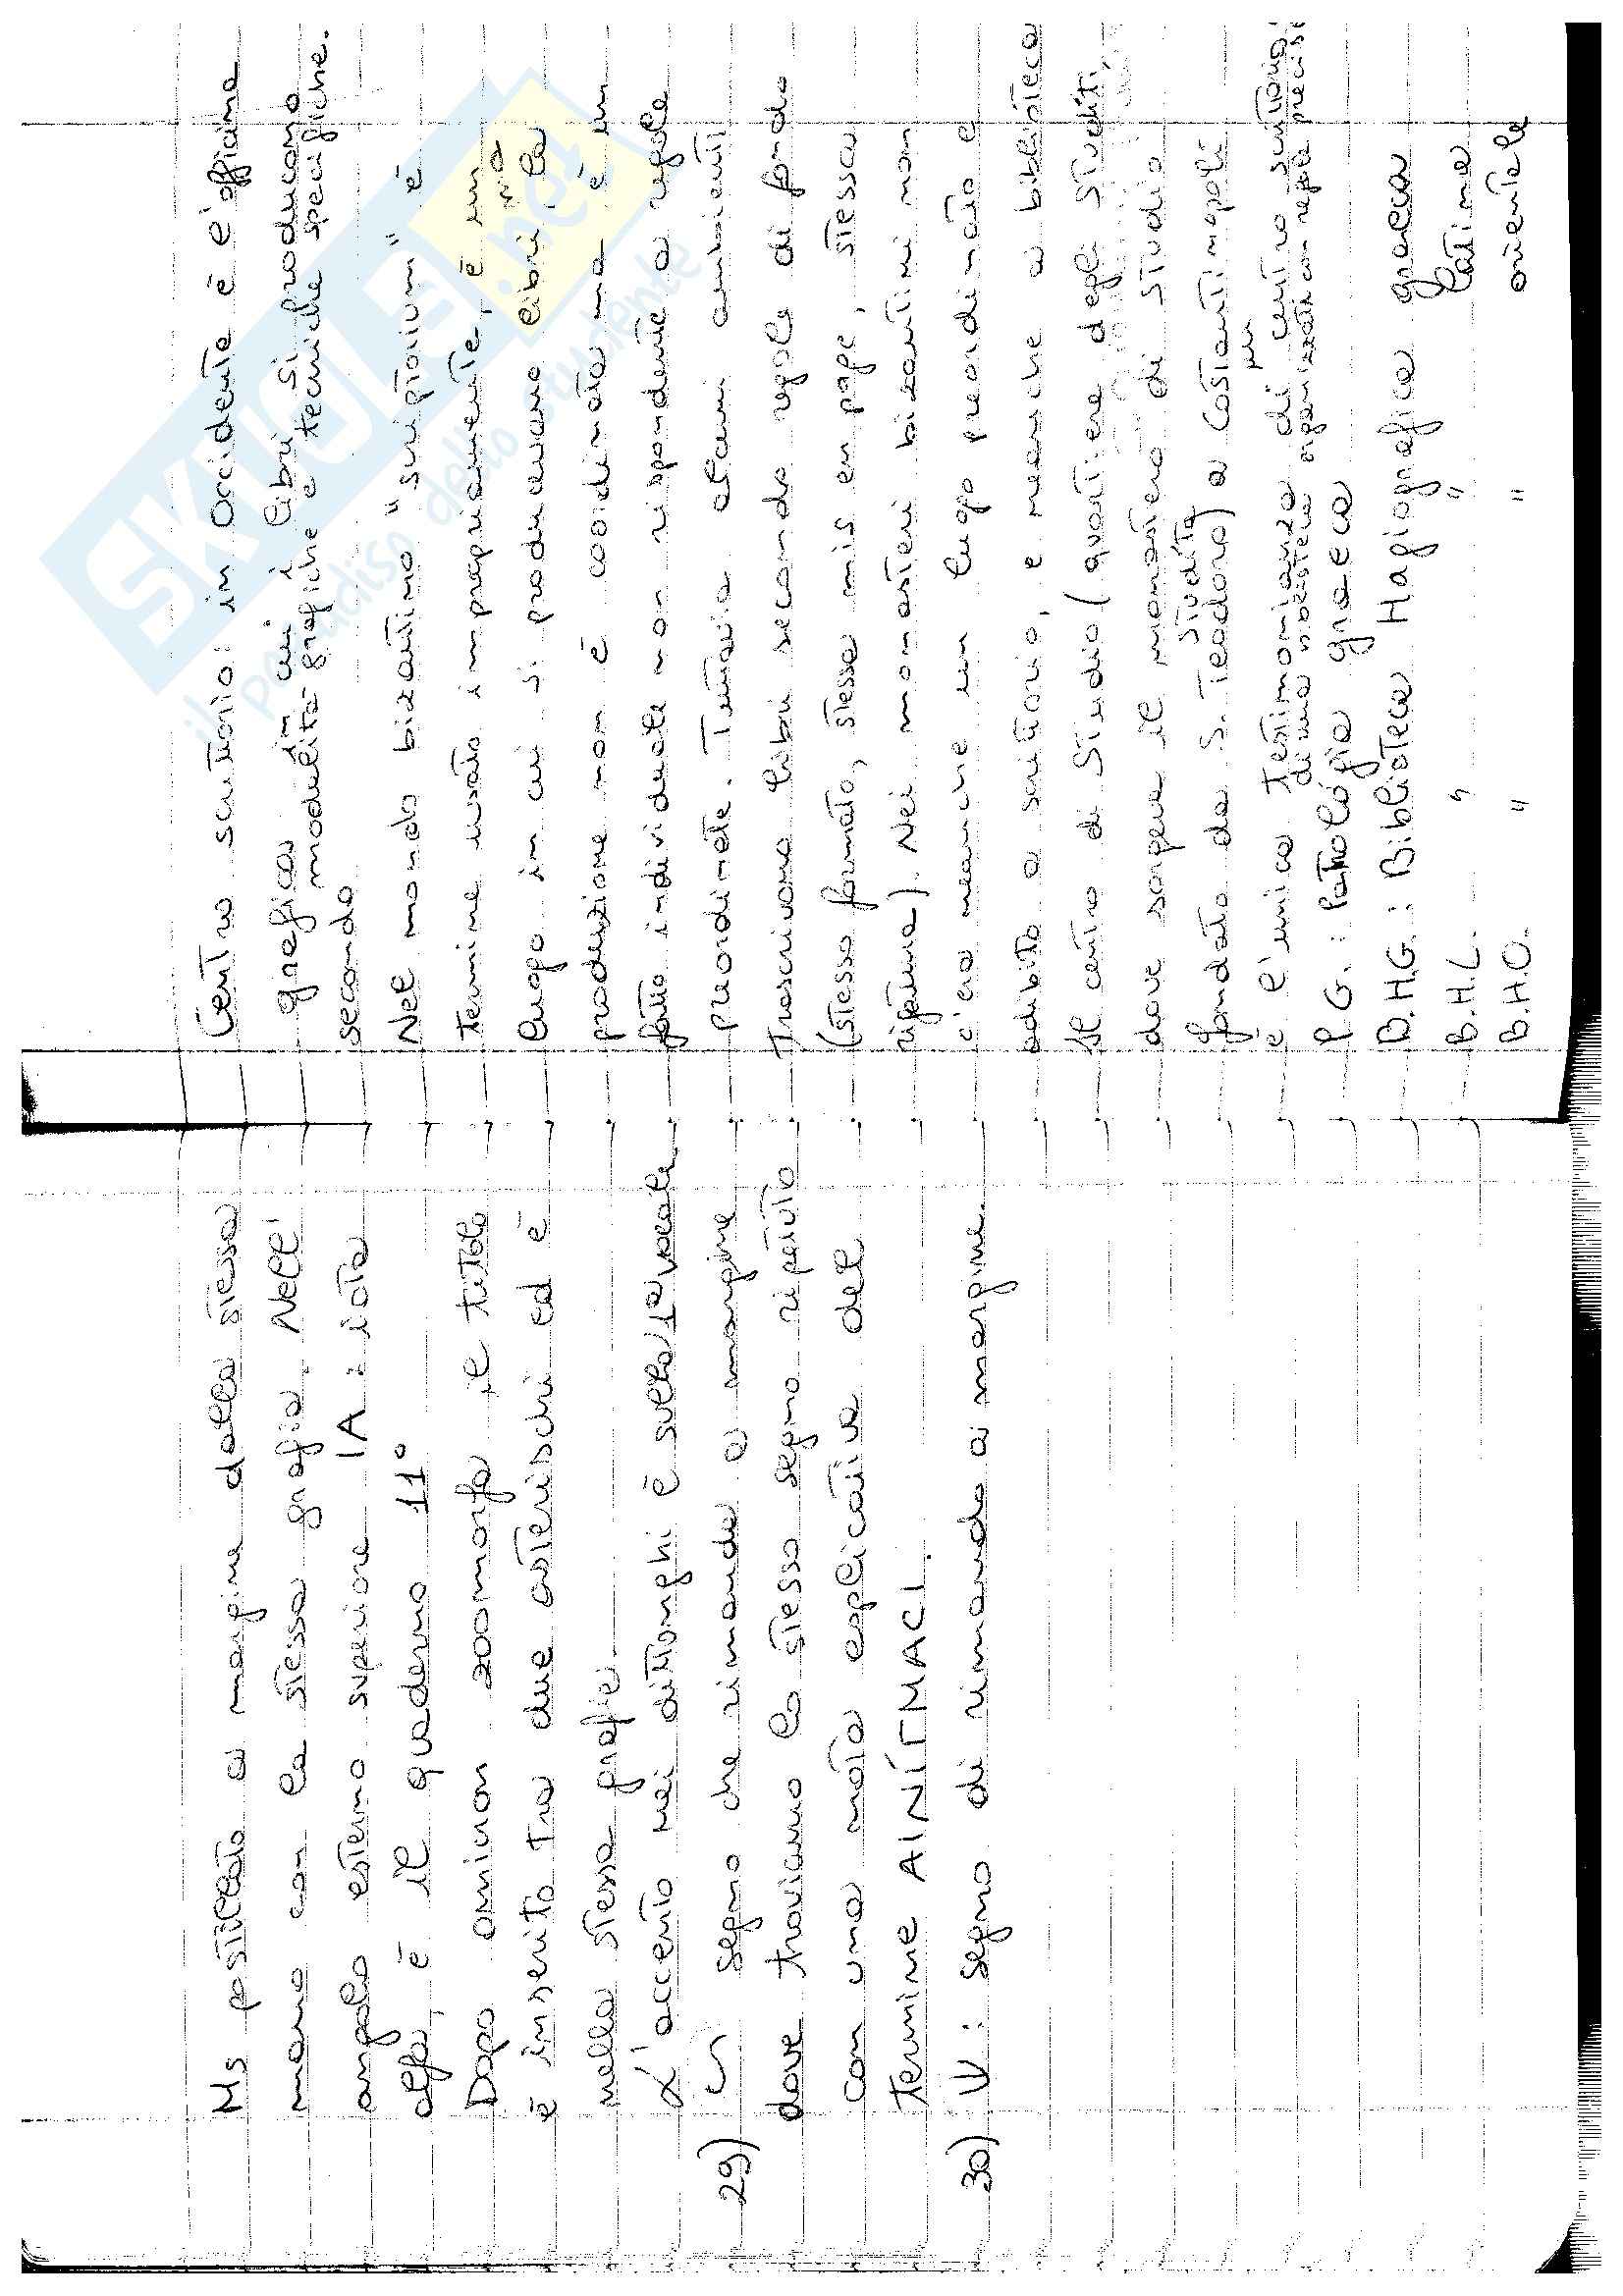 Ms postillato a margine dalla stessa
mano con la stessa grafia. Nell'
angolo esterno superiore IA: iota
alfa, è il quaderno 11°
Dopo omicron zoomorfa il titolo
è inserito tra due asterischi ed è
nella stessa grafia
L'accento nei dittonghi è sulla 1ª vocale
29) segno che rimanda a margine
dove troviamo lo stesso segno ripetuto
con una nota esplicativa del
termine AINÍTMACI.
30) Ψ: segno di rimando a margine.
Centro scrittorio: in Occidente è l'officina
grafica in cui i libri si producono
secondo modalità grafiche e tecniche specifiche.
Nel mondo bizantino "scriptorium" è
termine usato impropriamente, è un
luogo in cui si producevano libri ma la
produzione non è coordinata ma è un
fatto individuale non rispondente a regole
preordinate. Tuttavia alcuni ambienti
trascrivono libri secondo regole di fondo
(stesso formato, stessa mis en page, stessa
rigatura). Nei monasteri bizantini non
c'era neanche un luogo preordinato e
adibito a scrittorio, e neanche a biblioteca
Il centro di Studio (quartiere degli studiti,
dove sorgeva il monastero di studio
fondato da S. Teodoro studita) a Costantinopoli
è l'unica testimonianza di un centro scrittorio
di una biblioteca organizzati con regole precise
P.G.: Patrologia graeca
B.H.G.: Biblioteca Hagiografica graeca
B.H.L. " " latina
B.H.O. " " orientale
SKUOLA.net
il paradiso dello studente